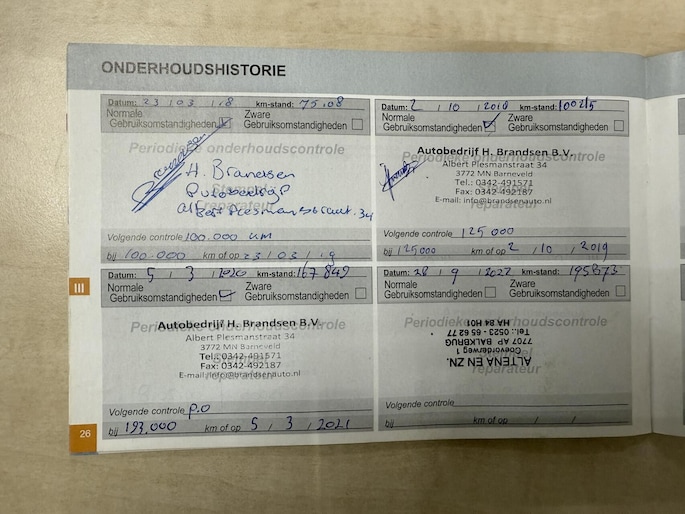 ONDERHOUDSHISTORIE
Datum: 23 / 03 / 18 km-stand: 75.08
Normale Gebruiksomstandigheden
Zware Gebruiksomstandigheden
Periodieke onderhoudscontrole
H. Brandsen
Autobedrijf
Albert Plesmanstraat. 34
reparateur
Volgende controle 100.000 km
bij 100.000 km of op 23 / 03 / 19
Datum: 2 / 10 / 2018 km-stand: 100215
Normale Gebruiksomstandigheden
Zware Gebruiksomstandigheden
Periodieke onderhoudscontrole
Autobedrijf H. Brandsen B.V.
Albert Plesmanstraat 34
3772 MN Barneveld
Tel.: 0342-491571
Fax: 0342-492187
E-mail: info@brandsenauto.nl
reparateur
Volgende controle 125 000
bij 125000 km of op 2 / 10 / 2019
Datum: 5 / 3 / 2020 km-stand: 167 849
Normale Gebruiksomstandigheden
Zware Gebruiksomstandigheden
Periodieke onderhoudscontrole
Autobedrijf H. Brandsen B.V.
Albert Plesmanstraat 34
3772 MN Barneveld
Tel.: 0342-491571
Fax: 0342-492187
E-mail: info@brandsenauto.nl
Volgende controle P.O
bij 193.000 km of op 5 / 3 / 2021
Datum: 28 / 9 / 2022 km-stand: 195873
Normale Gebruiksomstandigheden
Zware Gebruiksomstandigheden
Periodieke onderhoudscontrole
ALTENA EN ZN.
Coevorderweg 1
7707 AP BALKBRUG
Tel.: 0523 - 65 62 77
HA 84 H01
reparateur
Volgende controle
bij km of op / /
III
26